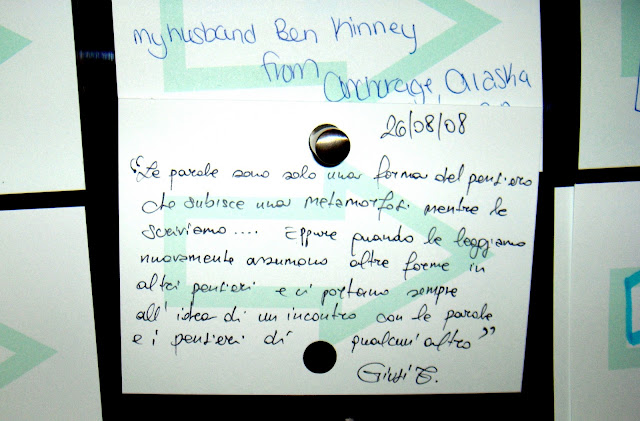 my husband Ben Kinney
from Anchorage, Alaska
26/08/08
"Le parole sono solo una forma del pensiero
che subisce una metamorfosi mentre le
scriviamo.... Eppure quando le leggiamo
nuovamente assumono altre forme in
altri pensieri e ci portano sempre
all'idea di un incontro con le parole
e i pensieri di qualcun'altro"
Giusi C.